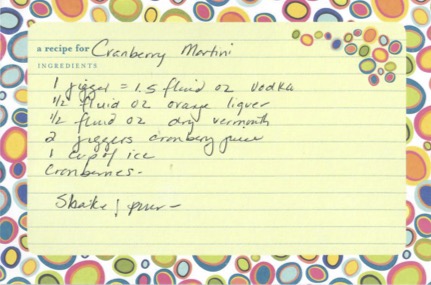 a recipe for Cranberry Martini
INGREDIENTS
1 jigger = 1.5 fluid oz vodka
1/2 fluid oz orange liquer
1/2 fluid oz dry vermouth
2 jiggers cranberry juice
1 cup of ice
Cranberries -
Shake & pour -